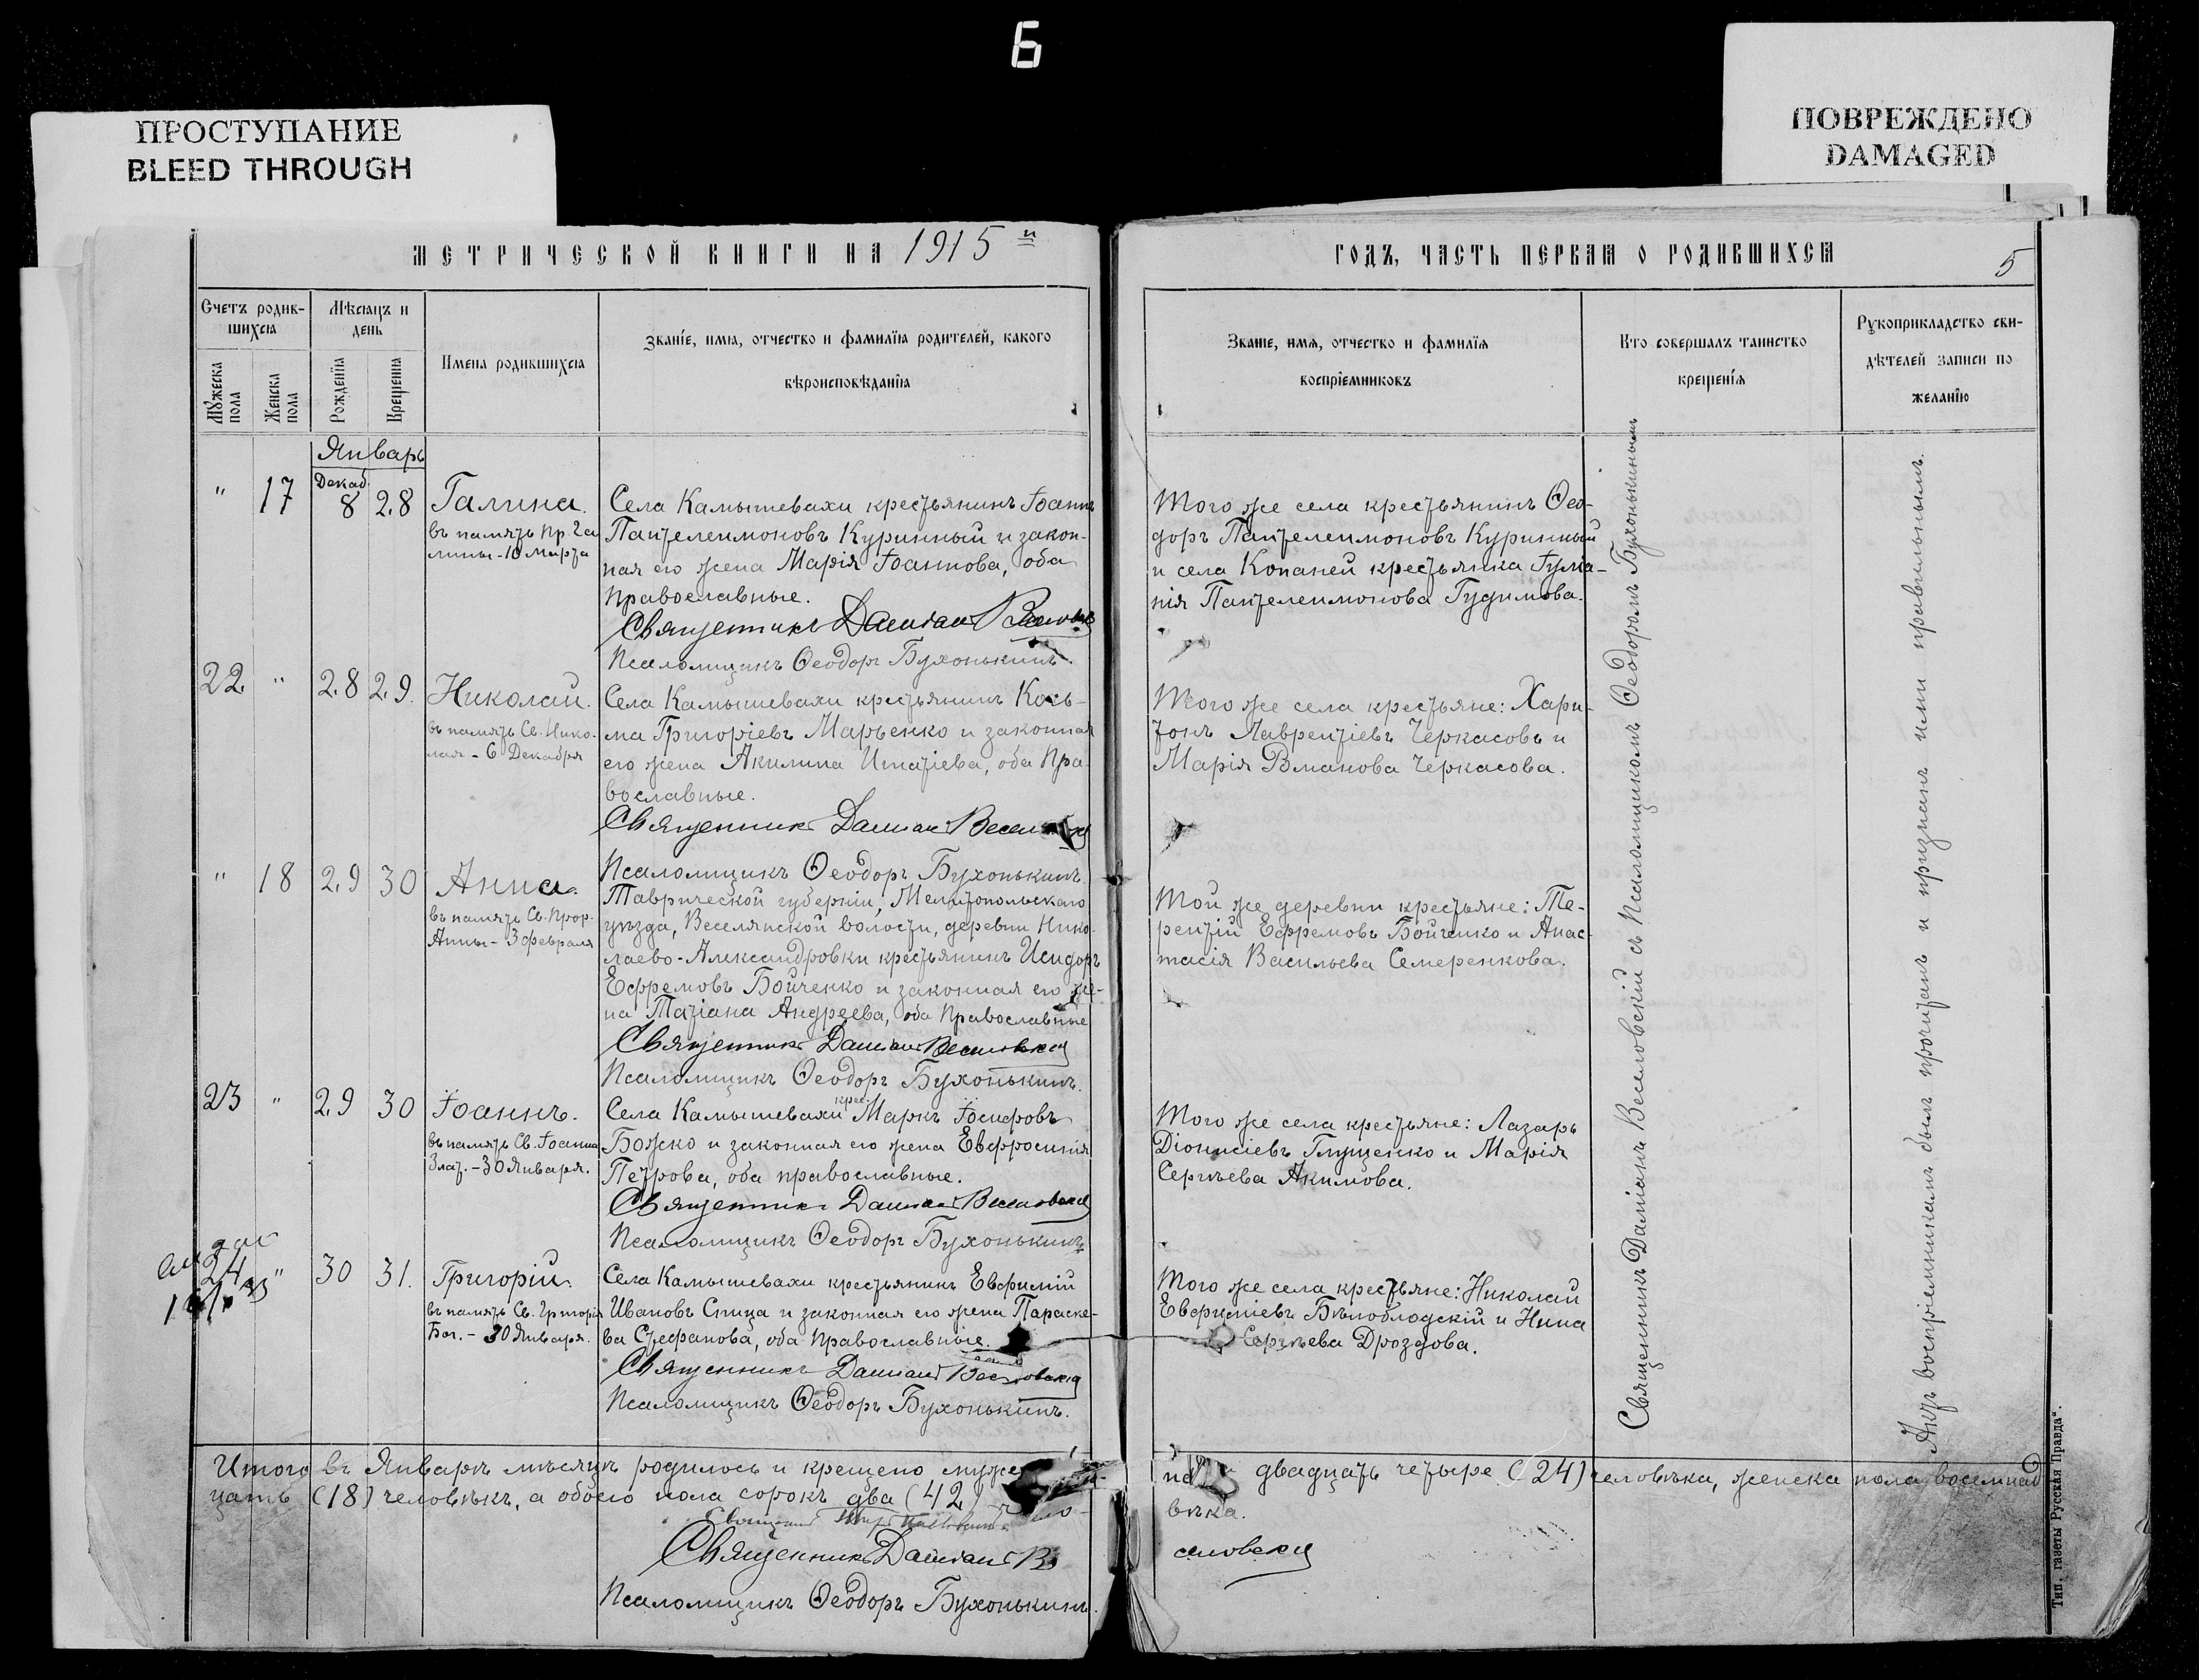 Б
ПРОСТУПАНИЕ
BLEED THROUGH
ПОВРЕЖДЕНО
DAMAGED
МЕТРИЧЕСКОЙ КНИГИ НА 1915 й
ГОДЪ, ЧАСТЬ ПЕРВАЯ О РОДИВШИХСЯ
5
Счетъ родив-
шихся
Мѣсяцъ и
день
Мужеска пола
Женска пола
Рожденія
Крещенія
Имена родившихся
Званіе, имя, отчество и фамилія родителей, какого
вѣроисповѣданія
Званіе, имя, отчество и фамилія
воспріемниковъ
Кто совершалъ таинство
крещенія
Рукоприкладство сви-
дѣтелей записи по
желанію
Январь
Декаб.
" 17 8 28 Галина.
въ память Пр. Га
лины - 10 Марта
Села Камышевахи крестьянинъ Іоаннъ
Пантелеимоновъ Куринный и закон-
ная его жена Марія Іоаннова, оба
православные.
Священникъ Даміанъ
Псаломщикъ Ѳеодоръ Бухонькинъ.
Того же села крестьянинъ Ѳео-
доръ Пантелеимоновъ Куринный
и села Копаней крестьянка Іуліа-
нія Пантелеимонова Гудимова.
22 " 28 29. Николай.
въ память Св. Нико-
лая - 6 Декабря
Села Камышевахи крестьянинъ Кось-
ма Григоріевъ Марьенко и законная
его жена Акилина Игнатіева, оба пра-
вославные.
Священникъ Даміанъ Веселовскій
Псаломщикъ Ѳеодоръ Бухонькинъ.
Того же села крестьяне: Хари-
тонъ Лаврентіевъ Черкасовъ и
Марія Романова Черкасова.
" 18 29 30 Анна.
въ память Св. Прор.
Анны - 3 февраля
Таврической губерніи, Мелитопольскаго
уѣзда, Веселянской волости, деревни Нико-
лаево-Александровки крестьянинъ Исидоръ
Ефремовъ Бойченко и законная его же-
на Татіана Андреева, оба православные
Священникъ Даміанъ Веселовскій
Псаломщикъ Ѳеодоръ Бухонькинъ.
Той же деревни крестьяне: Те-
рентій Ефремовъ Бойченко и Анас-
тасія Васильева Семеренкова.
23 " 29 30 Іоаннъ.
въ память Св. Іоанна
Злат. - 30 Января.
крес.
Села Камышевахи Маркъ Іосифовъ
Божко и законная его жена Евфросинія
Петрова, оба православные.
Священникъ Даміанъ Веселовскій
Псаломщикъ Ѳеодоръ Бухонькинъ
Того же села крестьяне: Лазарь
Діонисіевъ Глущенко и Марія
Сергѣева Акимова.
24 " 30 31. Григорій.
въ память Св. Григорія
Бог. - 30 Января.
Села Камышевахи крестьянинъ Евфимій
Ивановъ Спица и законная его жена Параске-
ва Стефанова, оба православные.
Священникъ Даміанъ Веселовскій
Псаломщикъ Ѳеодоръ Бухонькинъ.
Того же села крестьяне: Николай
Евфиміевъ Бѣлоблодскій и Нина
Сергѣева Дроздова.
Священникъ Даміанъ Веселовскій съ Псаломщикомъ Ѳеодоромъ Бухонькинымъ
Актъ воспріемниками былъ прочитанъ и признанъ ими правильнымъ.
Итого въ Январѣ мѣсяцѣ родилось и крещено муже двадцать четыре (24) человѣка, женска пола восемнад
цать (18) человѣкъ, а обоего пола сорокъ два (42) чело-
вѣка.
Священникъ Даміанъ Ве
селовскій
Псаломщикъ Ѳеодоръ Бухонькинъ.
Тип. газеты Русская Правда".